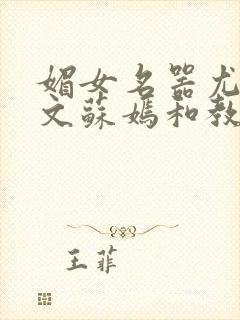 媚女名器尤
文蘇媽和教
王菲